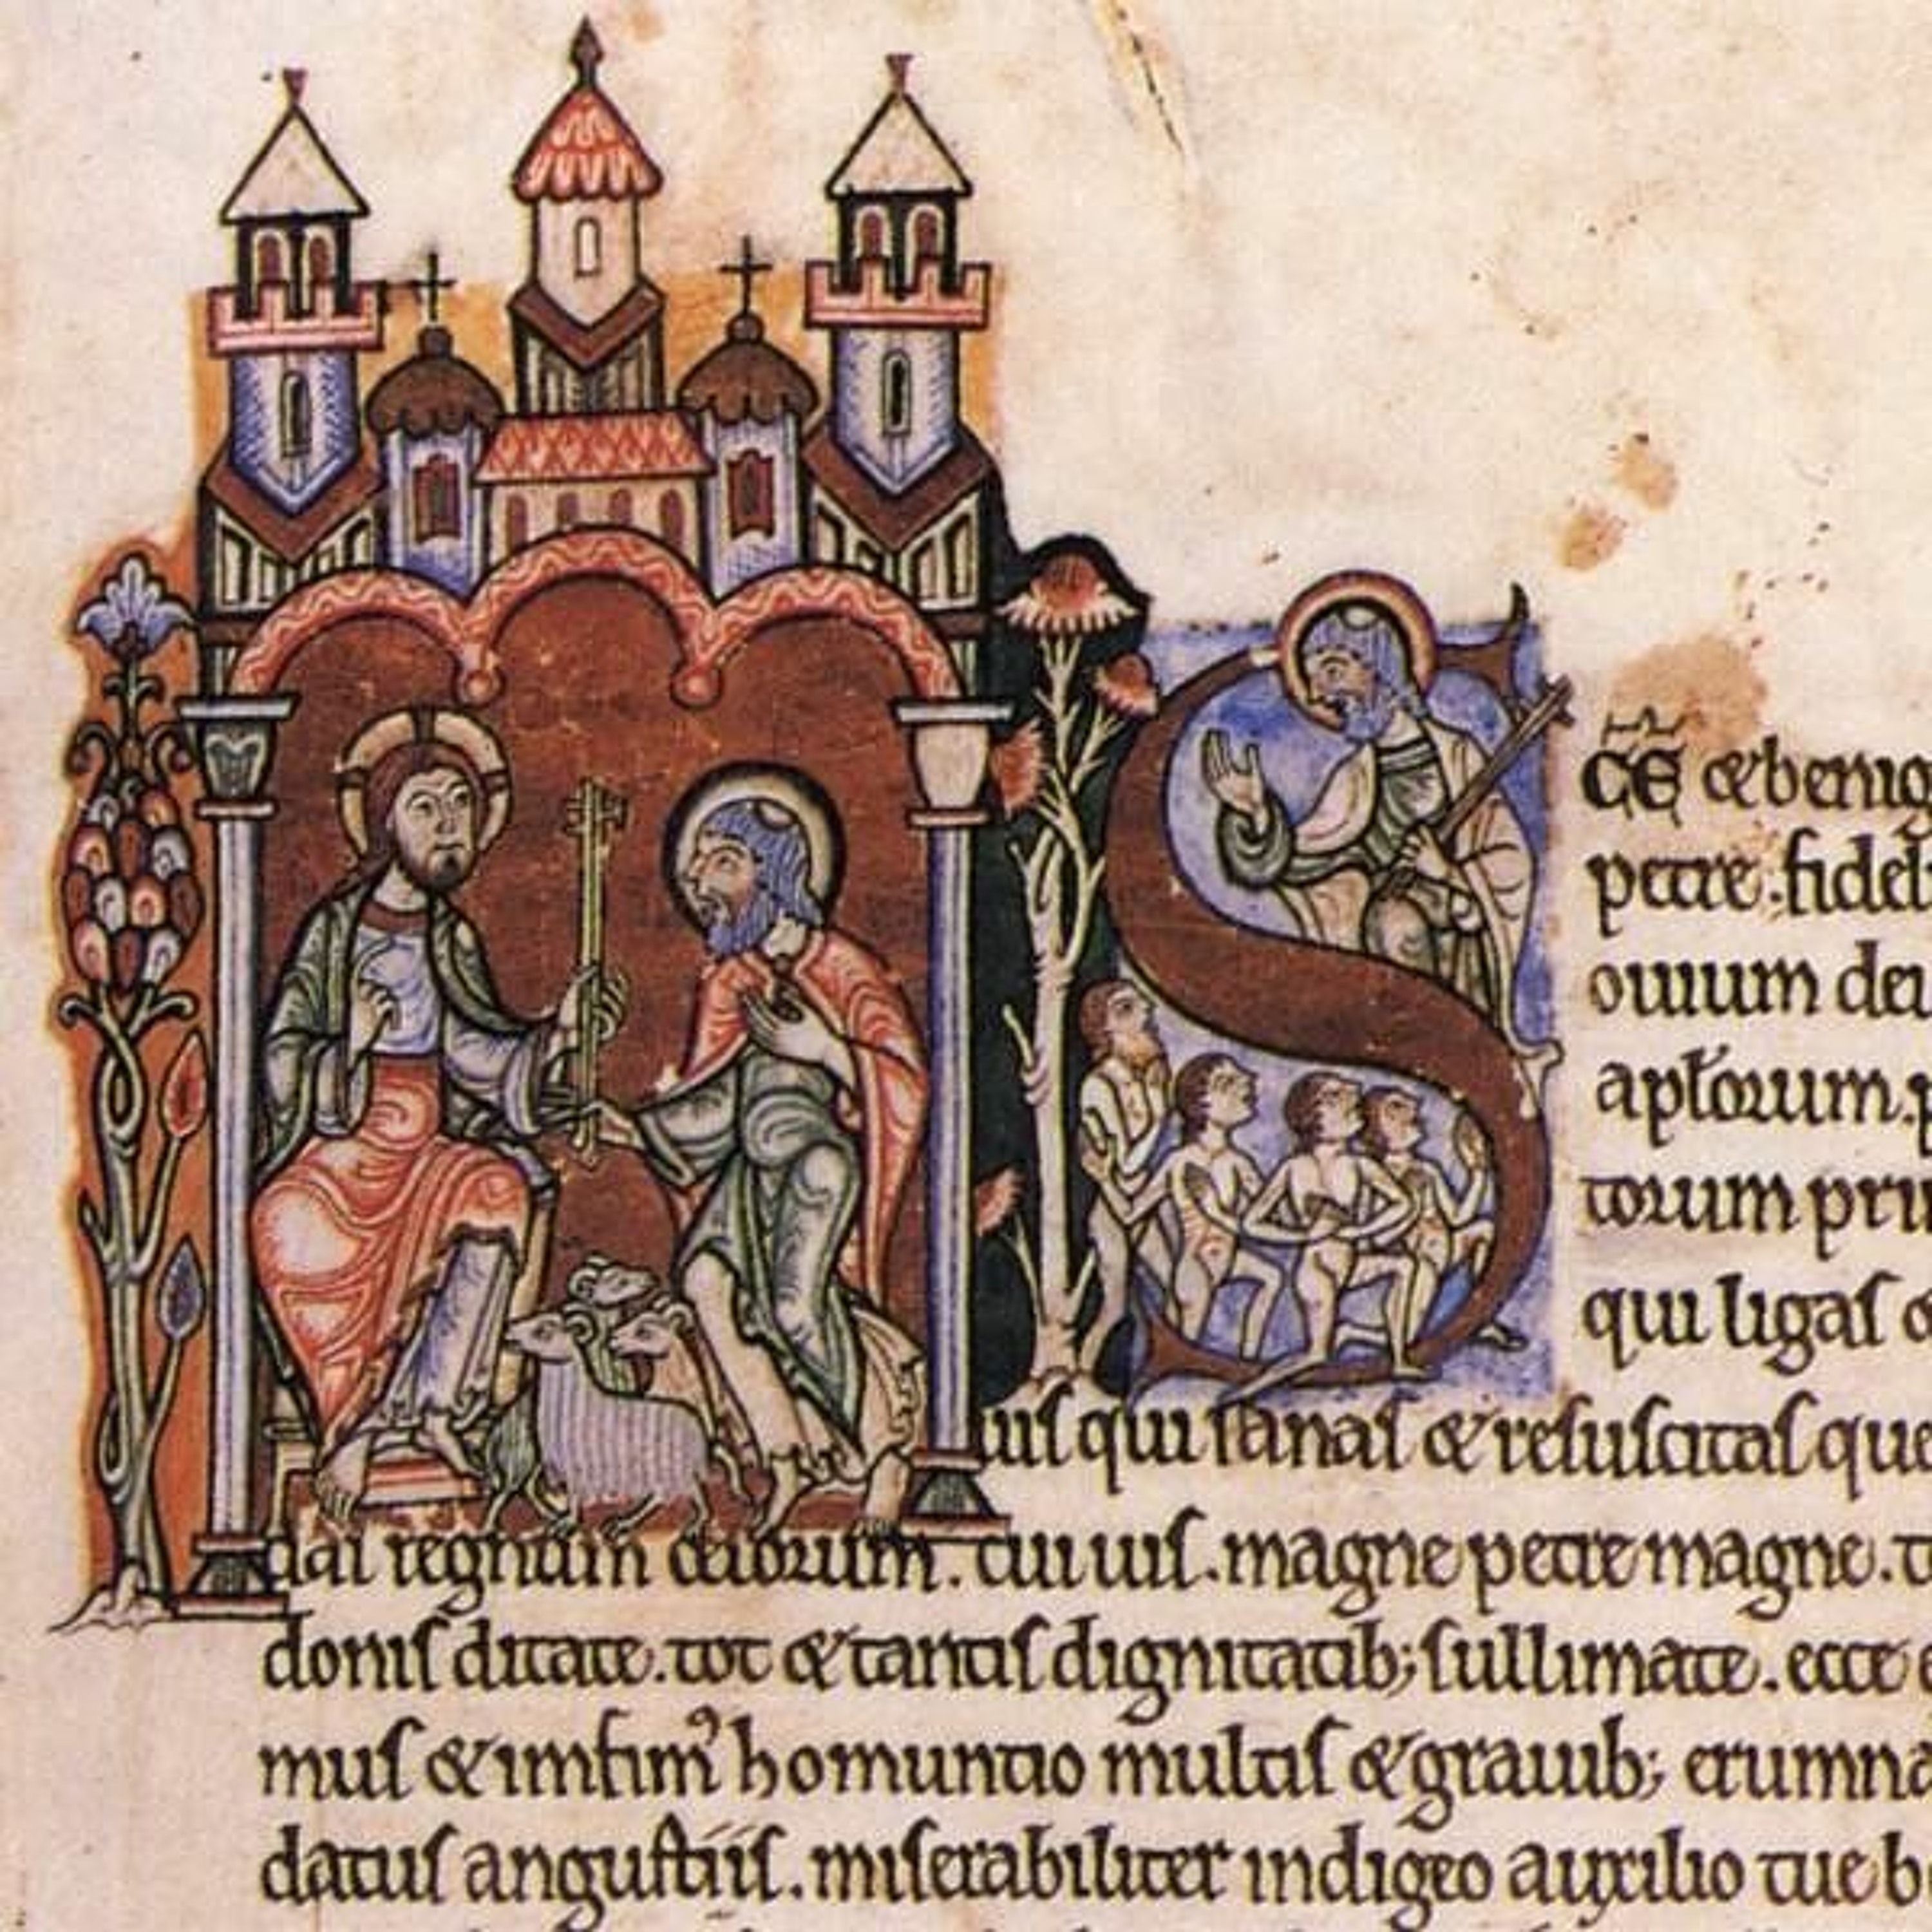 SCE & benig
petre. fidel
ouium dei
aplorum. p
torum prin
qui ligas
uis qui sanas & resuscitas que
das regnum celorum. cui uis. magne petre magne. t
donis ditate. tot & tantis dignitatib; sullimate. ecce e
mus & infim' homuntio multis & grauib; erumna
datus angustiis. miserabiliter indigeo auxilio tue b